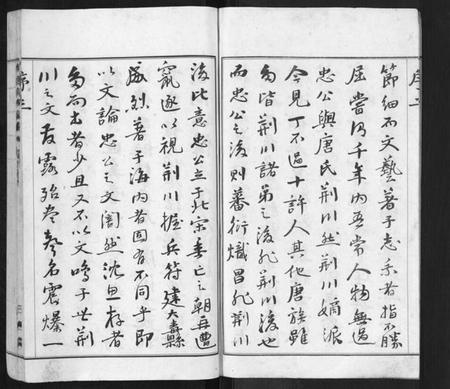 序二
節細而文藝著于志乘者指不勝
屈嘗謂千年內吾常人物無過
忠公與唐氏荊川然荊川嫡派
今見丁不過十許人其他唐族雖
多皆荊川諸弟之後孔荊川後也
而忠公之後則蕃衍熾昌孔荊川
後比意忠公立于北宋垂亡之朝再遭
竄逐以視荊川握兵符建大纛縣
烈著于海內者固有不同乎即
以文論忠公之文闇然沈思存者
多而出者少且又不以文鳴于世荊
川之文友露殆盡聲名震爆一
序二